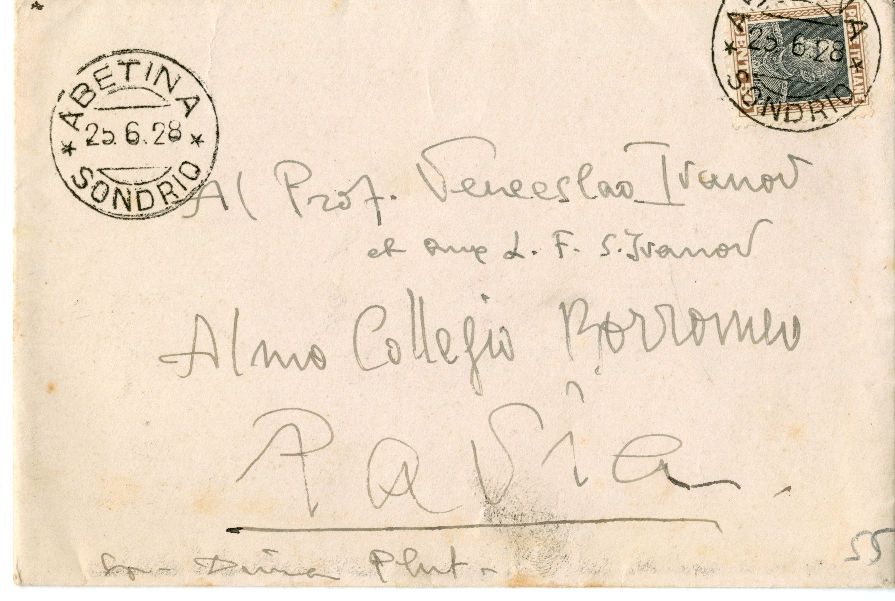 ABETINA
25.6.28
SONDRIO
25.6.28
SONDRIO
Al Prof. Venceslao Ivanov
et L. F. S. Ivanov
Almo Collegio Borromeo
Pavia.
55